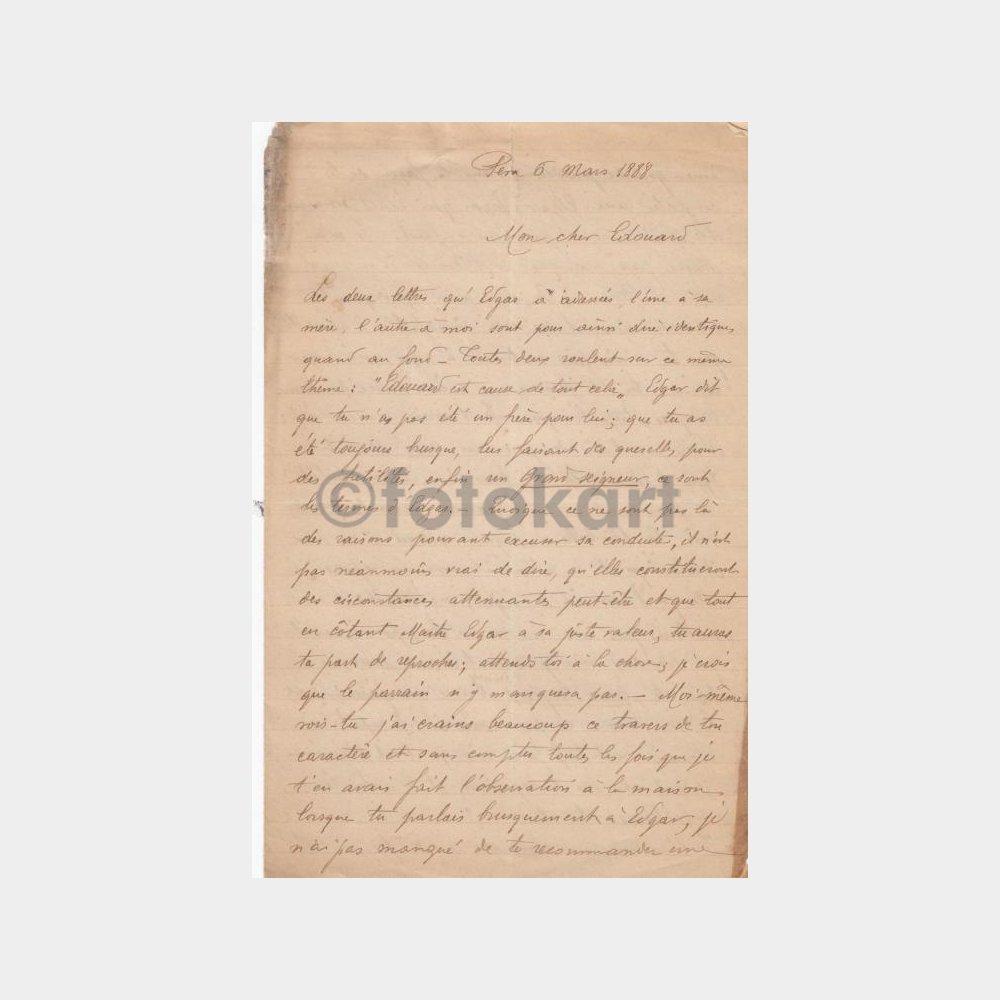 Pera 6 Mars 1888
Mon cher Edouard
Les deux lettres qu' Edgar a l'une à sa
mère, l'autre à moi sont pour ainsi dire identiques
quand au fond - Toutes deux roulent sur ce même
thême : "Edouard est cause de tout cela" Edgar dit
que tu n'as pas été un frère pour lui ; que tu as
été toujours brusque, lui faisant des querelles pour
des futilités, enfin un Grand seigneur, ce sont
les termes d'Edgar. - Quoique ce ne sont pas là
des raisons pouvant excuser sa conduite, il n'est
pas néanmoins vrai de dire, qu'elles constitueront
des circonstances attenuantes peut-être et que tout
en côtant Maître Edgar à sa juste valeur, tu auras
ta part de reproches ; attends toi à la chose ; je crois
que le parrain n'y manquera pas. - Moi-même
vois-tu j'ai crains beaucoup ce travers de ton
caractère et sans compter toutes les fois que je
t'en avais fait l'observation à la maison
lorsque tu parlais brusquement à Edgar, je
n'ai pas manqué de te recommander une
©fotokart